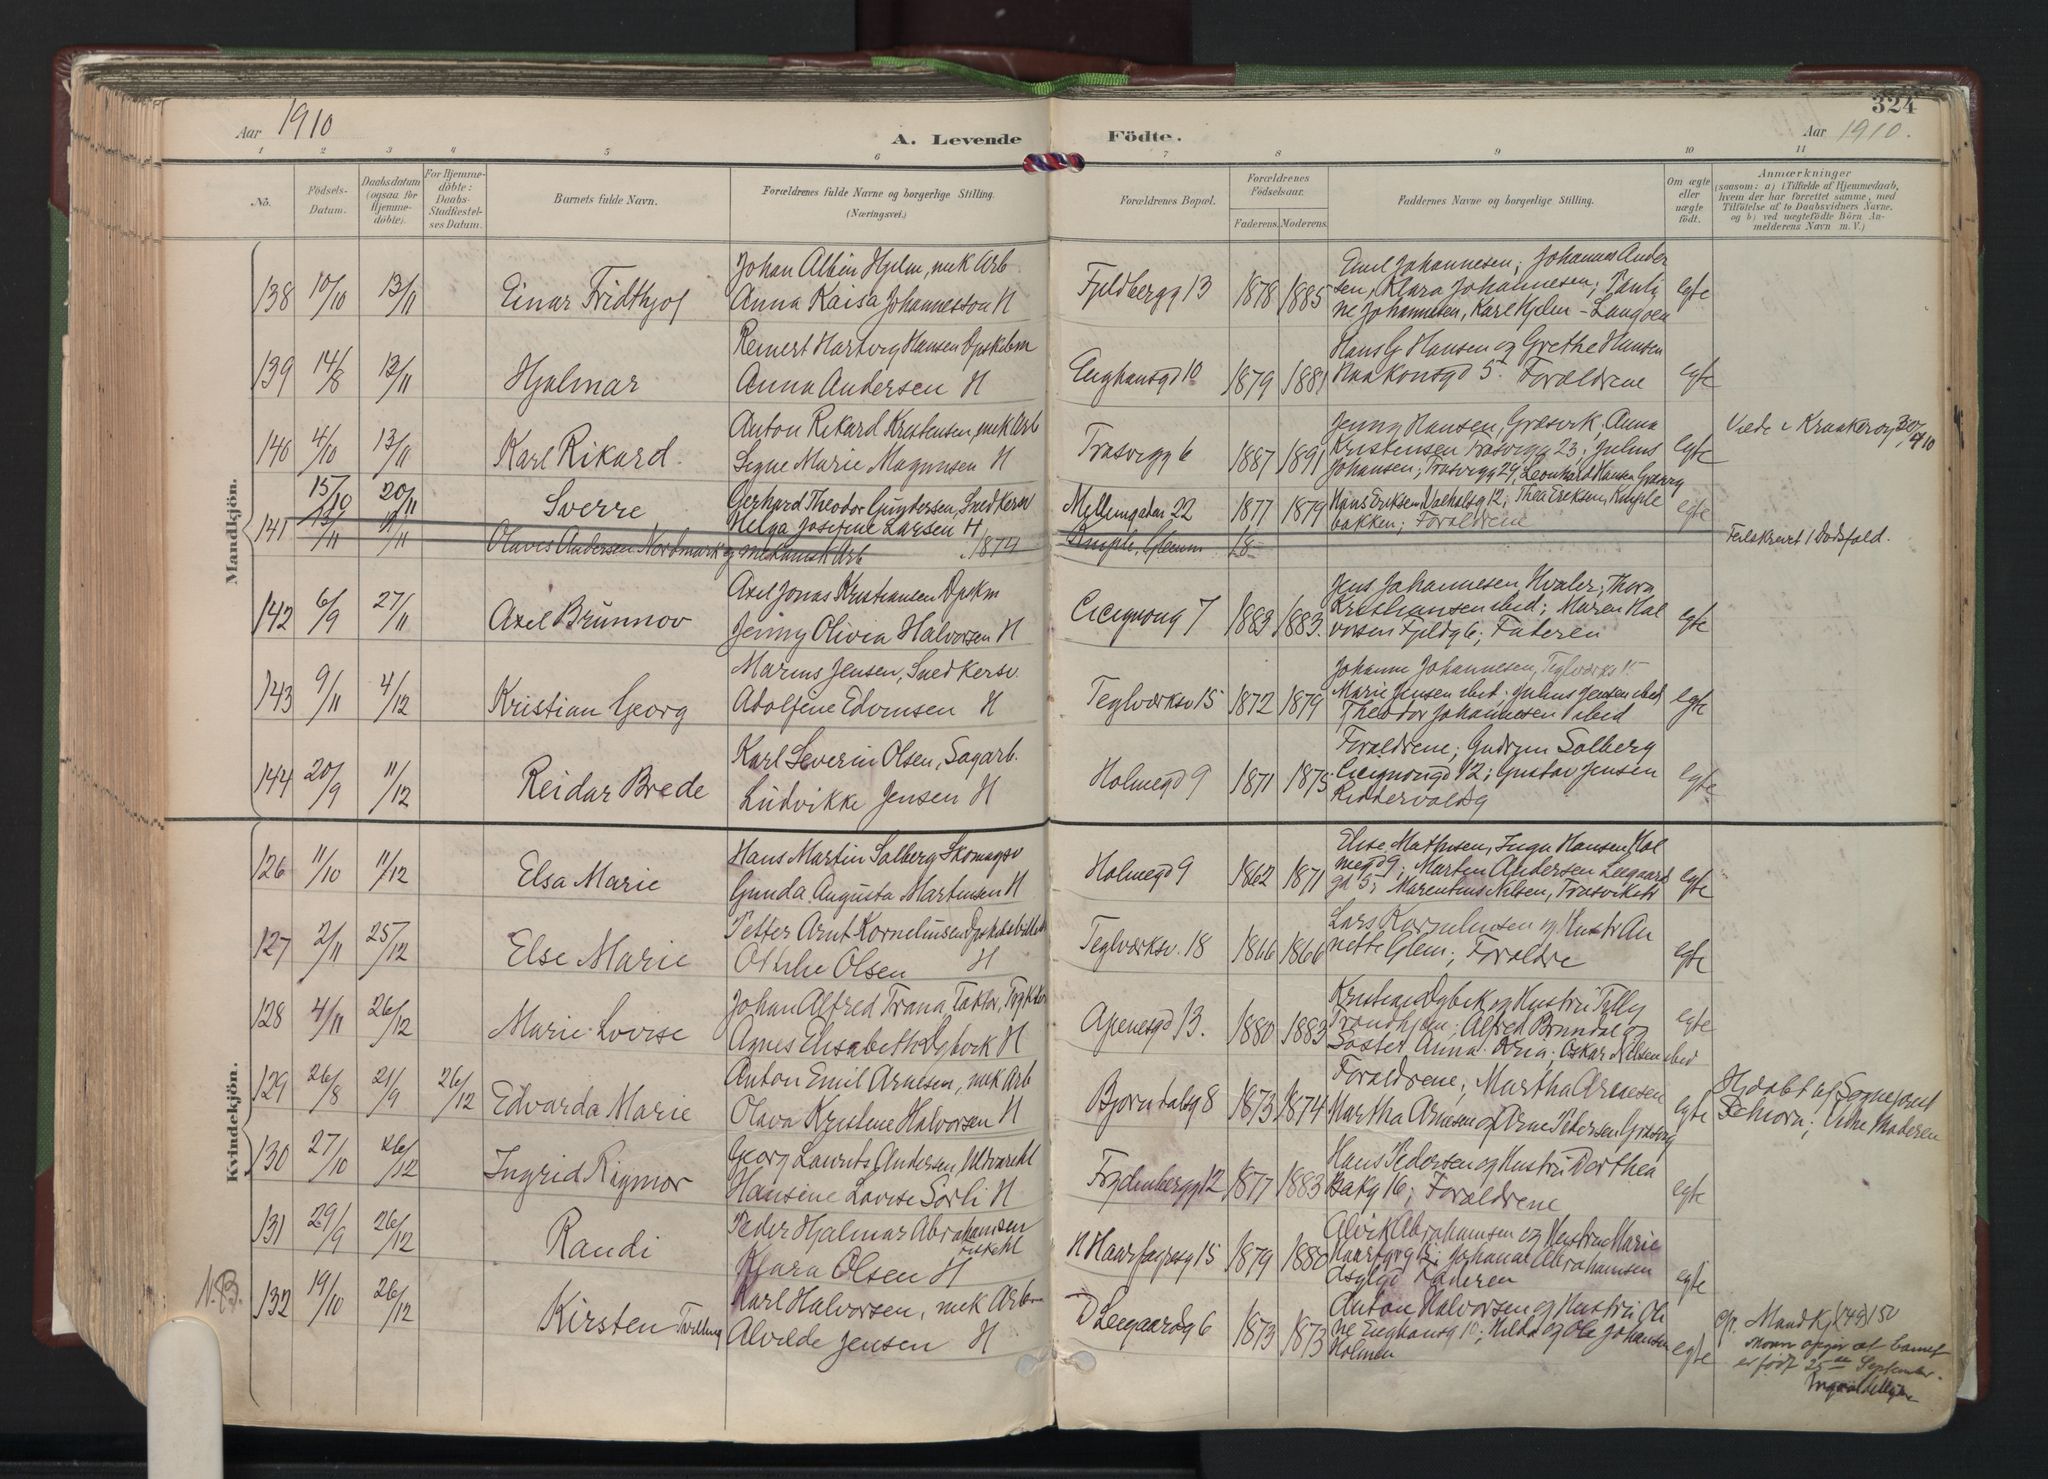 324
Aar 1910
A. Levende
Födte.
Aar 1910.
1 2 3 4 5 6 7 8 9 10 11
No.
Födsels-
Datum.
Daabsdatum
(ogsaa for
Hjemme-
döbte).
For Hjemme-
döbte:
Daabs-
Stadfæstel-
ses Datum.
Barnets fulde Navn.
Forældrenes fulde Navne og borgerlige Stilling.
(Næringsvei.)
Forældrenes Bopæl.
Forældrenes
Födselsaar.
Faderens. Moderens.
Faddernes Navne og borgerlige Stilling.
Om ægte
eller
uægte
födt.
Anmærkninger
(saasom: a) i Tilfælde af Hjemmedaab,
hvem der har forrettet samme, med
Tilföielse af to Daabsvidners Navne.
og b) ved uægtefödte Börn An-
melderens Navn m. V.)
Mandkjön.
138 10/10 13/11 Einar Fridthjof
Johan Albin Hjelm, mek Arb
Anna Kaisa Johannesson H
Fjeldbergg 13 1878 1885
Emil Johannesen; Johannes Ander
sen, Klara Johannesen; Pauli
ne Johannesen, Karl Hjelm - Langöen
egte
139 14/8 13/11 Hjalmar
Reinert Hartvig Hansen Dpskibm
Anna Andersen H
Enghausgd 10 1879 1881
Hans G Hansen og Grethe Hansen
Haakonsgd 5. Forældrene
egte
140 4/10 13/11 Karl Rikard.
Anton Rikard Kristensen, mek Arb
Signe Marie Magnusen H
Trosvigg 6 1887 1891
Jenny Hansen, Græsvik, Anna
Kristensen Trosvigg 23; Julius
Johansen; Trosvigg 24; Leonhard Hansen Græsvig
egte
Viede i Kraakeröy 30/4 10
141 15/10 20/11 Sverre
Gerhard Theodor Gundersen, Snedkersv
Helga Josefine Larsen H
Møllergaden 22 1877 1879
Hans Eriksen Valhalsg 12; Thea Eriksen, Kniple
bakken; Forældrene
egte
13/11 11/11 Olaves Andersen Nordmark og mekanisk Arb 1874
Kniple, Glemm 18-
Feilskrevet i Dødsfald.
142 6/9 27/11 Axel Brünnov
Axel Jonas Kristiansen Dpskm
Jenny Olivia Halvorsen H
Cicignong 7 1883 1883.
Jens Johannesen Hvaler; Thora
Kristiansen ibid; Maren Hal
vorsen Fjeldg 6; Faderen
egte
143 9/11 4/12 Kristian Georg
Marius Jensen, Snedkersv.
Adolfine Edvinsen H
Teglværksv 15 1872 1879
Johanne Johannesen, Teglværksv 15
Marie Jensen ibid. Julius Jensen ibid
Theodor Johannesen ibid
egte
144 20/9 11/12 Reidar Brede
Karl Severin Olsen, Sagarb.
Ludvikke Jensen H
Holmegd 9 1871 1875.
Forældrene; Gudrun Solberg
Cicignongd 12; Gustav Jensen
Riddervoldsg
egte
Kvindekjön.
126 11/10 11/12 Elsa Marie
Hans Martin Solberg Skomagsv
Gunda Augusta Martinsen H
Holmegd 9 1862 1871
Elise Mathisen, Inga Hansen Hol
megd 9; Martin Andersen Leegaard
gd 5; Marentius Nilsen, Trosvikstr
egte
127 2/11 25/12 Else Marie
Petter Arnt Kornelius
Othilie Olsen H
Teglværksv. 18 1866 1866
Lars Korneliusen og Hustr An
nette Glem; Forældre
egte
128 4/11 26/12 Marie Lovise
Johan Alfred Trana
Agnes Elisabeth Dybeck H
Apenesgd 13. 1880 1883
Kristian Dybek og Hustru Tylly
Trondhjem; Alfred Brundal og
Søster Anna. Kria; Oskar Nilsen ibid
egte
129 26/8 21/9 26/12 Edvarda Marie
Anton Emil Arnesen, mek Arb
Olava Kristine Halvorsen H
Bjørndalsg 8 1873 1874
Forældrene; Martha Arnesen
Martha Arnesen og Arne Pedersen Græsvig
egte
Hjdøbt af Sognepræst
Schiørn; Vidne Moderen
130 27/10 26/12 Ingrid Rigmor
Georg Lauritz Andersen
Hansine Lovise Sørli H
Frydenbergg 12 1877 1883
Hans Pedersen og Hustru Dorthea
Bakg 16; Forældrene
egte
131 29/9 26/12 Randi
Peder Hjalmar Abrahamsen
Klara Olsen H
H Haarfagresg 15 1879 1880
Alvik Abrahamsen og Hustru Marie
Haarfgrg 15; Johanne Abrahamsen
Faderen
egte
N.B.
132 19/10 26/12 Kirsten Tvilling
Karl Halvorsen, mek Arb
Alvilde Jensen H
D Leegaardsg 6 1873 1873
Anton Halvorsen og Hustru Oli
ne Enghausg 10; Hilda og Ole Johansen
Holmen
egte
cfr. Mandkj (149) 150
Moren opgir at barnet
er født 25de September.